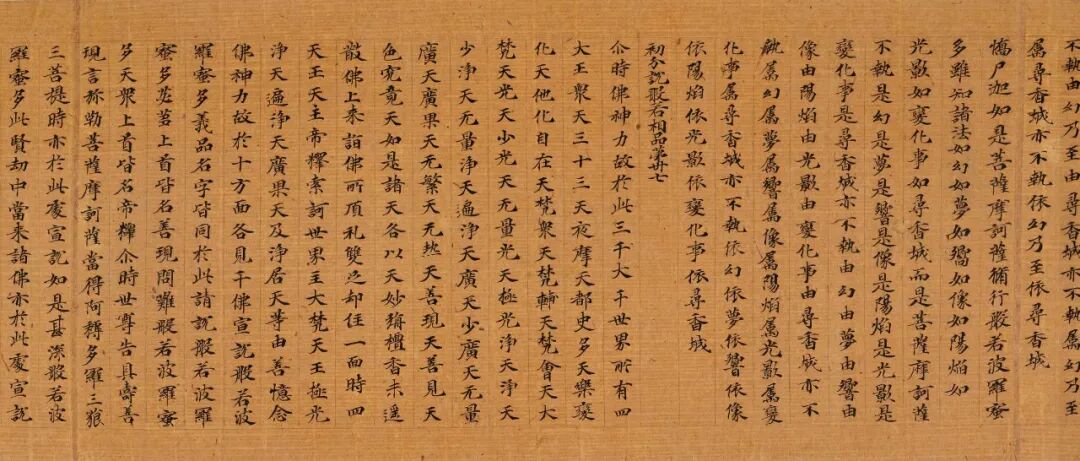 不執由幻乃至由尋香城亦不執屬幻乃至
屬尋香城亦不執依幻乃至依尋香城
憍尸迦如是菩薩摩訶薩脩行般若波羅蜜
多雖知諸法如幻如夢如響如像如陽焰如
光影如變化事如尋香城而是菩薩摩訶薩
不執是幻是夢是響是像是陽焰是光影是
變化事是尋香城亦不執由幻由夢由響由
像由陽焰由光影由變化事由尋香城亦不
執屬幻屬夢屬響屬像屬陽焰屬光影屬變
化事屬尋香城亦不執依幻依夢依響依像
依陽焰依光影依變化事依尋香城
初分説般若相品第卅七
尒時佛神力故於此三千大千世界所有四
大王衆天三十三天夜摩天都史多天樂變
化天他化自在天梵衆天梵輔天梵會天大
梵天光天少光天无量光天極光淨天淨天
少淨天无量淨天遍淨天廣天少廣天无量
廣天廣果天无繁天无热天善現天善見天
色究竟天如是諸天各以天妙旃檀香末遥
散佛上来詣佛所頂礼雙足却住一面時四
天王天主帝釋索訶世界主大梵天王極光
淨天遍淨天廣果天及淨居天等由善憶念
佛神力故於十方面各見千佛宣説般若波
羅蜜多義品名字皆同於此請説般若波羅
蜜多苾芻上首皆名善現問難般若波羅蜜
多天衆上首皆名帝釋尒時世尊告具壽善
現言弥勒菩薩摩訶薩當得阿耨多羅三藐
三菩提時亦於此處宣説如是甚深般若波
羅蜜多此賢劫中當来諸佛亦於此處宣説